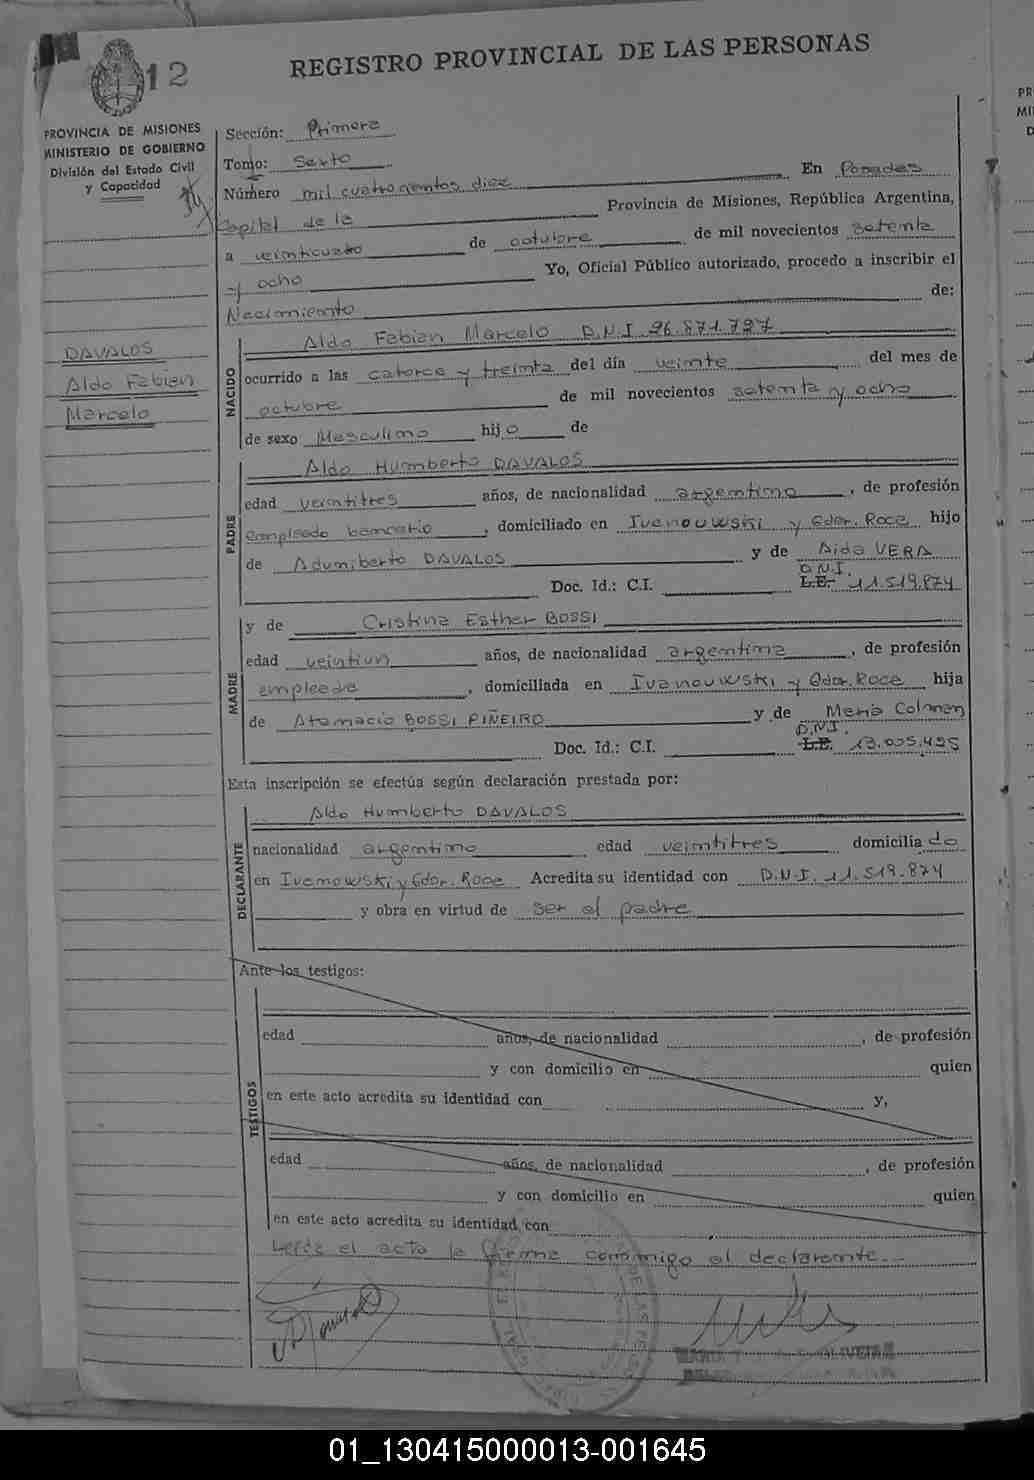 12
REGISTRO PROVINCIAL DE LAS PERSONAS
PROVINCIA DE MISIONES
MINISTERIO DE GOBIERNO
División del Estado Civil
y Capacidad
Sección: Primera
Tomo: Sexto
Número mil cuatrocientos diez En Posadas
Capital de la Provincia de Misiones, República Argentina,
a veinticuatro de octubre de mil novecientos setenta
y ocho Yo, Oficial Público autorizado, procedo a inscribir el
Nacimiento de:
DAVALOS
Aldo Fabian
Marcelo
NACIDO
Aldo Fabian Marcelo D.N.I 26.871.727
ocurrido a las catorce y treinta del día veinte del mes de
octubre de mil novecientos setenta y ocho
de sexo Masculino hijo de
PADRE
Aldo Humberto DAVALOS
edad veintitres años, de nacionalidad argentino, de profesión
empleado bancario, domiciliado en Ivanowski y Gdor. Roca hijo
de DAVALOS y de Aida VERA
D.N.I.
Doc. Id.: C.I. L.E. 11.519.874
MADRE
y de Cristina Esther BOSSI
edad veintiun años, de nacionalidad argentina, de profesión
empleada, domiciliada en Ivanouwski y Gdor. Roca hija
de Atanacio BOSSI PIÑEIRO y de Maria Colman
D.N.I.
Doc. Id.: C.I. L.E. 13.005.495
Esta inscripción se efectúa según declaración prestada por:
DECLARANTE
Aldo Humberto DAVALOS
nacionalidad argentino edad veintitres domiciliado
en Ivanowski y Gdor. Roca Acredita su identidad con D.N.I. 11.519.874
y obra en virtud de ser el padre
Ante los testigos:
TESTIGOS
edad años, de nacionalidad , de profesión
y con domicilio en quien
en este acto acredita su identidad con y,
edad años, de nacionalidad , de profesión
y con domicilio en quien
en este acto acredita su identidad con
Leída el acta la firma conmigo el declarante.-
OLIVEIRA
01_130415000013-001645